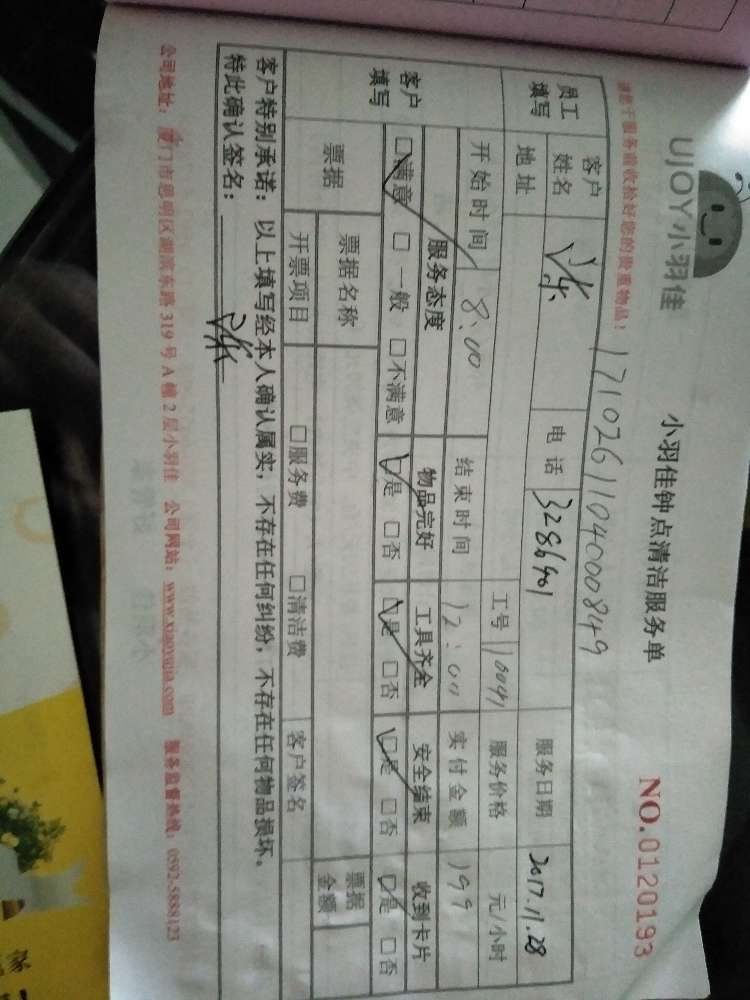 UJOY小羽佳
小羽佳钟点清洁服务单
NO.0120193
请您于服务前收拾好您的贵重物品!
1710261104000849
员工填写 客户姓名 电话 3286401 服务日期 2017.11.28
地址 工号 110041 服务价格 元/小时
开始时间 8:00 结束时间 12:00 实付金额 199
客户填写 服务态度 物品完好 工具齐全 安全结束 收到卡片
□满意 □一般 □不满意 □是 □否 □是 □否 □是 □否 □是 □否
票据 票据名称 票据金额
开票项目 □服务费 □清洁费 客户签名
客户特别承诺:以上填写经本人确认属实,不存在任何纠纷,不存在任何物品损坏。
特此确认签名:
公司地址:厦门市思明区湖滨东路319号A幢2层小羽佳 公司网站:www.xiaoyujia.com 服务监督热线:0592-5888123
家